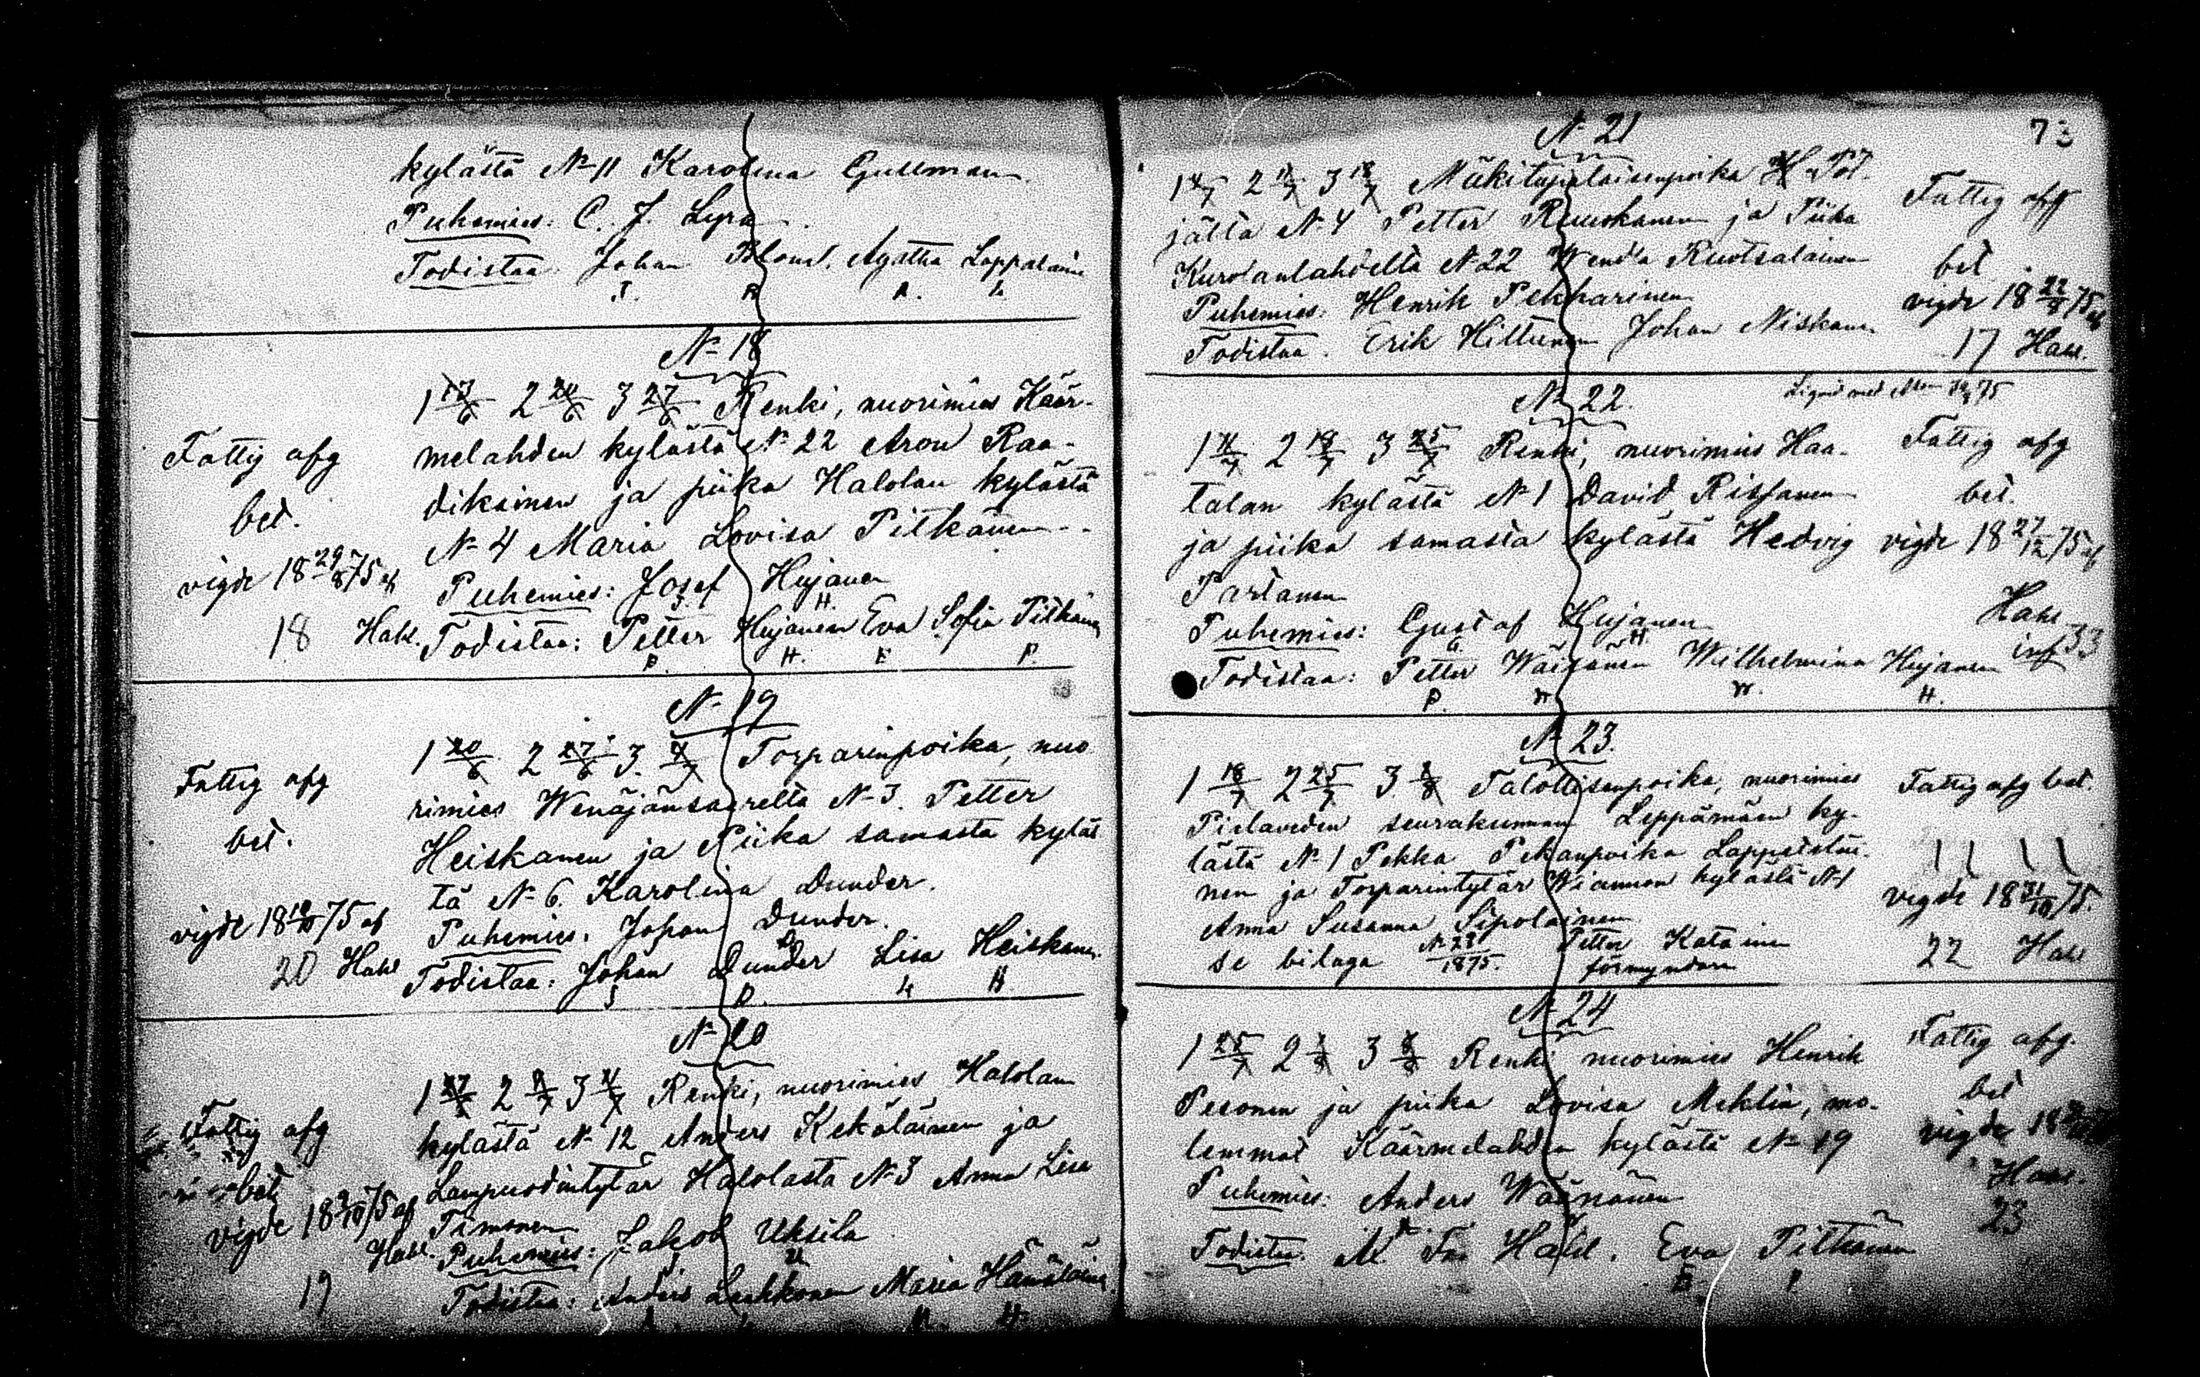 kylästä N 11 Karolina Gullman
Puhemies: C. J. Lyra
Todistaa: Johan Blom. Agatha Lappalainen
J. B A. L
N 18
1 13/6 2 20/6 3 27/6 Renki, nuorimies Käär-
melahden kylästä N 22 Aron Raa-
dikainen ja piika Halolan kylästä
N 4 Maria Lovisa Pitkänen
Puhemies: Josef Hujanen
J. H.
Todistaa: Petter Hujanen Eva Sofia Pitkänen
P. H. E P.
Fattig afg
bet.
vigde 18 29/8 75 af
18 Hahl.
N 19
1 20/6 2 27/6 3. 4/7 Torparinpoika, nuo
rimies Wenäjänsaarelta N 3. Petter
Heiskanen ja Piika samasta kyläs
tä N 6. Karolina Dunder.
Puhemies. Johan Dunder.
Todistaa: Johan Dunder Lisa Heiskanen.
J D. L H.
Fattig afg
bet.
vigde 18 10/10 75 af
20 Hahl
N 20
1 27/6 2 4/7 3 11/7 Renki, nuorimies Halolan
kylästä N 12 Anders Kekäläinen ja
Lampuodintytär Halolasta N 3 Anna Lisa
Timonen
Puhemies: Jakob Uksila
U
Todistaa: Anders Leskkonen Maria Hämäläinen.
M. H.
Fattig afg
bet
vigde 18 75 af
Hahl.
19
73
N 21
1 4/7 2 11/7 3 18/7 Mäkitupalaisenpoika Töl-
jältä N 4 Petter Ruuskanen ja Piika
Kurolanlahdelta N 22 Wendla Ruotsalainen
Puhemies: Henrik Pekkarinen
Todistaa. Erik Hiltunen Johan Niskanen
Fattig afg
bet
vigde 18 22/8 75 af
17 Hahl.
N 22.
1 11/7 2 18/7 3 25/7 Renki, nuorimies Haa-
talan kylästä N 1 David Rissanen
ja piika samasta kylästä Hedvig
Partanen
Puhemies: Gustaf Hujanen
G H
Todistaa: Petter Wäisänen Wilhelmina Hujanen
P. W W. H.
Fattig afg
bet.
vigde 18 27/12 75 af
Hahl
inf 33
N 23.
1 18/7 2 25/7 3 1/8 Talollisenpoika, nuorimies
Pielaveden seurakunnan Leppämäen ky-
lästä N 1 Pekka Pekanpoika Lappeteläi-
nen ja Torparintytär Wiannon kylästä N 1
Anna Susanna Sipolainen
se bilaga N 23/1875. Petter Katainen
förmyndare
Fattig afg bet.
vigde 18 31/10 75.
22 Hahl
N 24
1 25/7 2 1/8 3 8/8 Renki nuorimies Henrik
Pesonen ja piika Lovisa Meklin, mo-
lemmat Käärmelahden kylästä N 19
Puhemies: Anders Wäänänen
Todistaa. Hahl. Eva Pitkänen
E P
Fattig afg.
bet
vigde 18
Hahl.
23